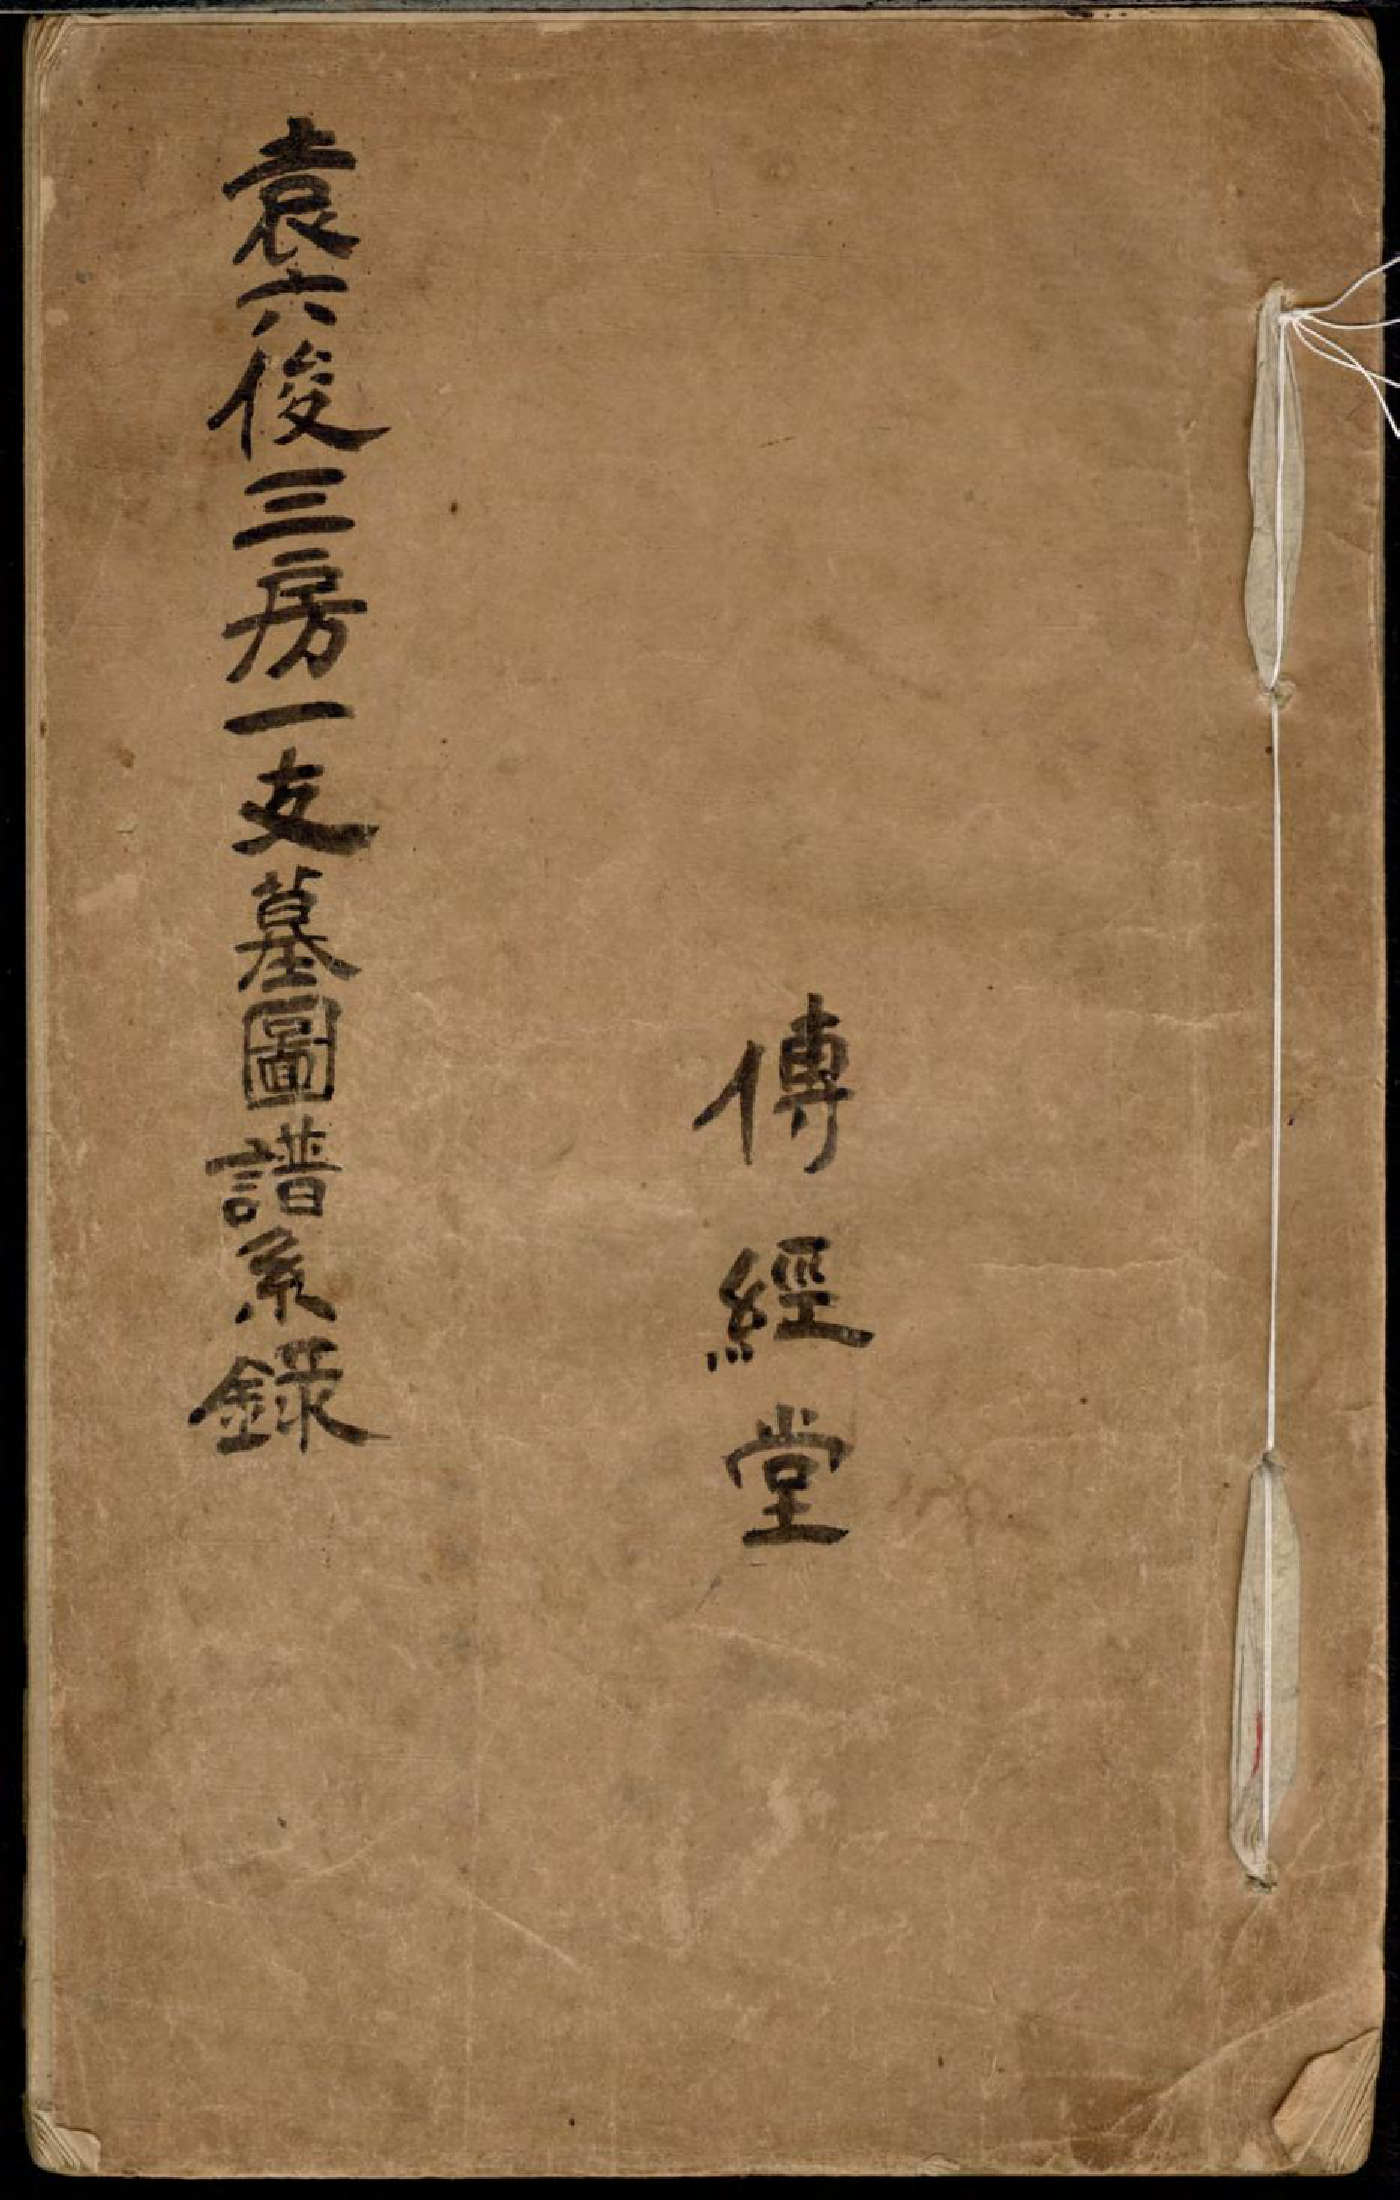 傳經堂
袁六俊三房一支墓圖譜系錄